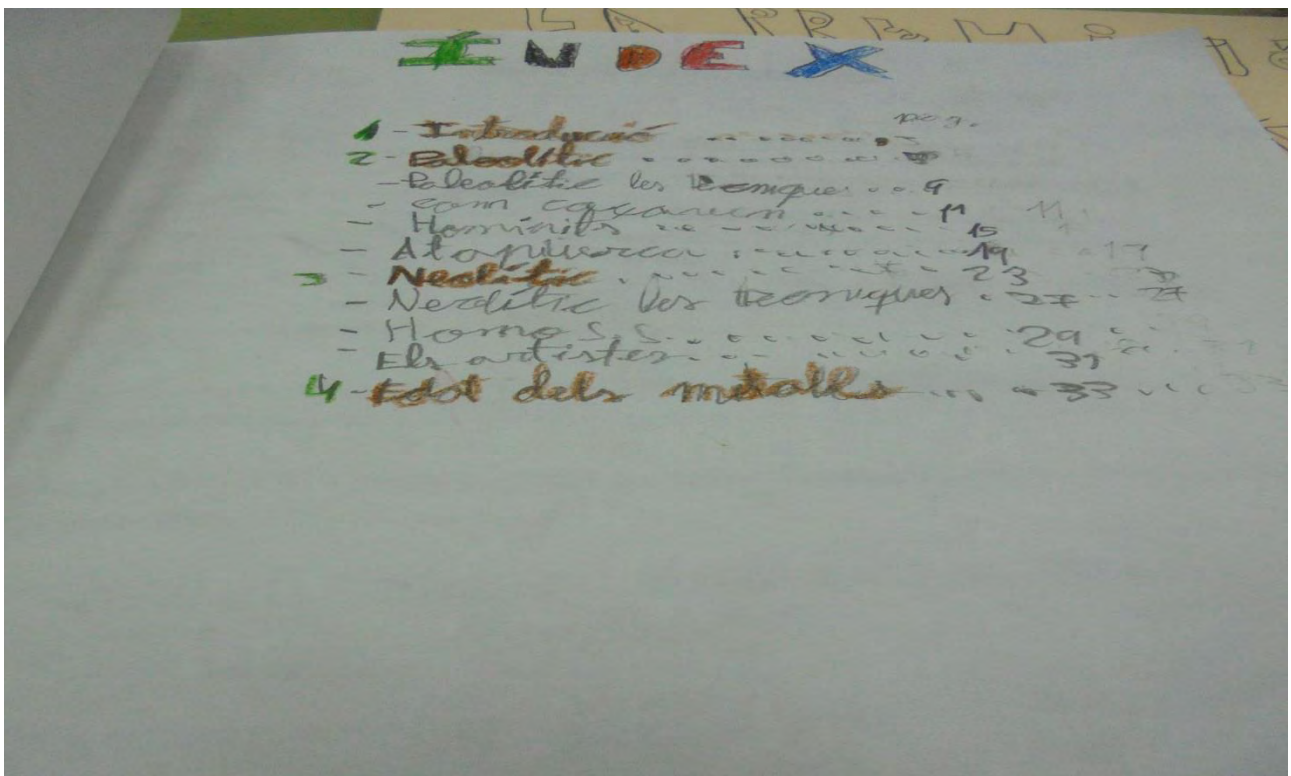 LA PREHI
ÍNDEX
pag.
1 - Introducció ............ 5
2 - Paleolític ............
- Paleolític les tecniques ... 9
- com caçaven ..... 11 11
- Hominits ............ 15
- Atapuerca ............ 19 19
3 - Neolític ............ 23
- Neolític les tecniques . 27 .. 27
- Homo S.S. ............ 29
- Els artistes ............ 31 31
4 - Edat dels metalls ..... 33 ... 33